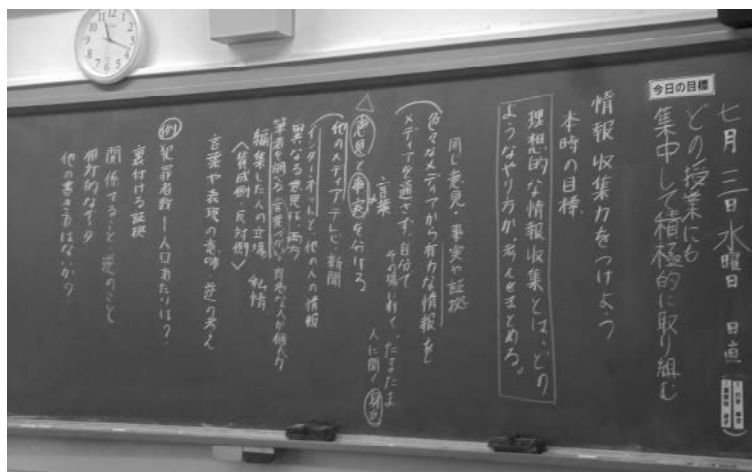 七月三日水曜日 日直
今日の目標
どの授業にも
集中して積極的に取り組む
情報収集力をつけよう
本時の目標
理想的な情報収集とは、どの
ようなやり方か、考えをまとめる。
同じ意見・事実や証拠
色々なメディアから有力な情報を
メディアを通さず、自分で
その場に行く、たまたま
人に聞く
言葉
意見と事実を分ける
他のメディア テレビ・新聞
インターネットなど、他の人の情報
異なる意見は両方
筆者を調る 言葉づかい 有名な人か個人か
編集した人の立場 私情
〈賛成側・反対側〉
言葉や表現の意味 逆の考え
例 犯罪者数―人口あたりは？
裏付ける証拠
関係すること 逆のこと
相対的なデータ
他の書き方はないか？
12
11
10
9
8
7
6
5
4
3
2
1